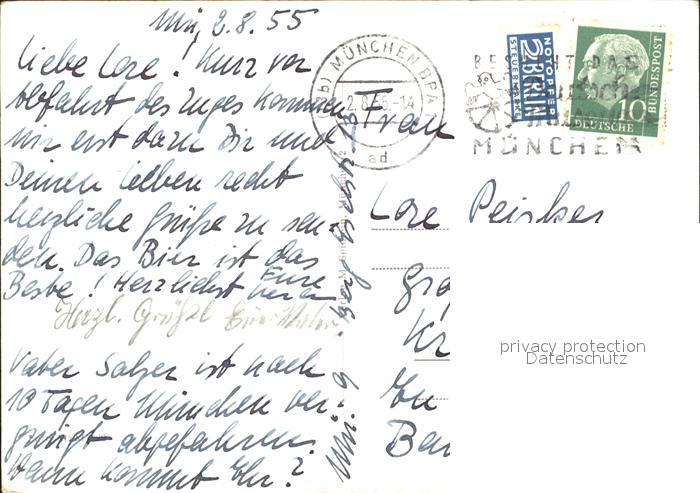 Mü, 2.8.55
Liebe Lore! Kurz vor
Abfahrt des Zuges kommen
wir erst dazu Dir und
Deinen lieben recht
herzliche Grüße zu sen-
den. Das Bier ist das
Beste! Herzlichst Eure
Herzl. Grüße Eure
Vater Salzer ist nach
10 Tagen München ver-
gnügt abgefahren.
Wann kommt Ihr?
MÜNCHEN BPA
2.8.55-14
ad
NOTOPFER
2 BERLIN
STEUERMARKE
DEUTSCHE
BUNDESPOST
10
MÜNCHEN
Frau
Lore Peisker
privacy protection
Datenschutz